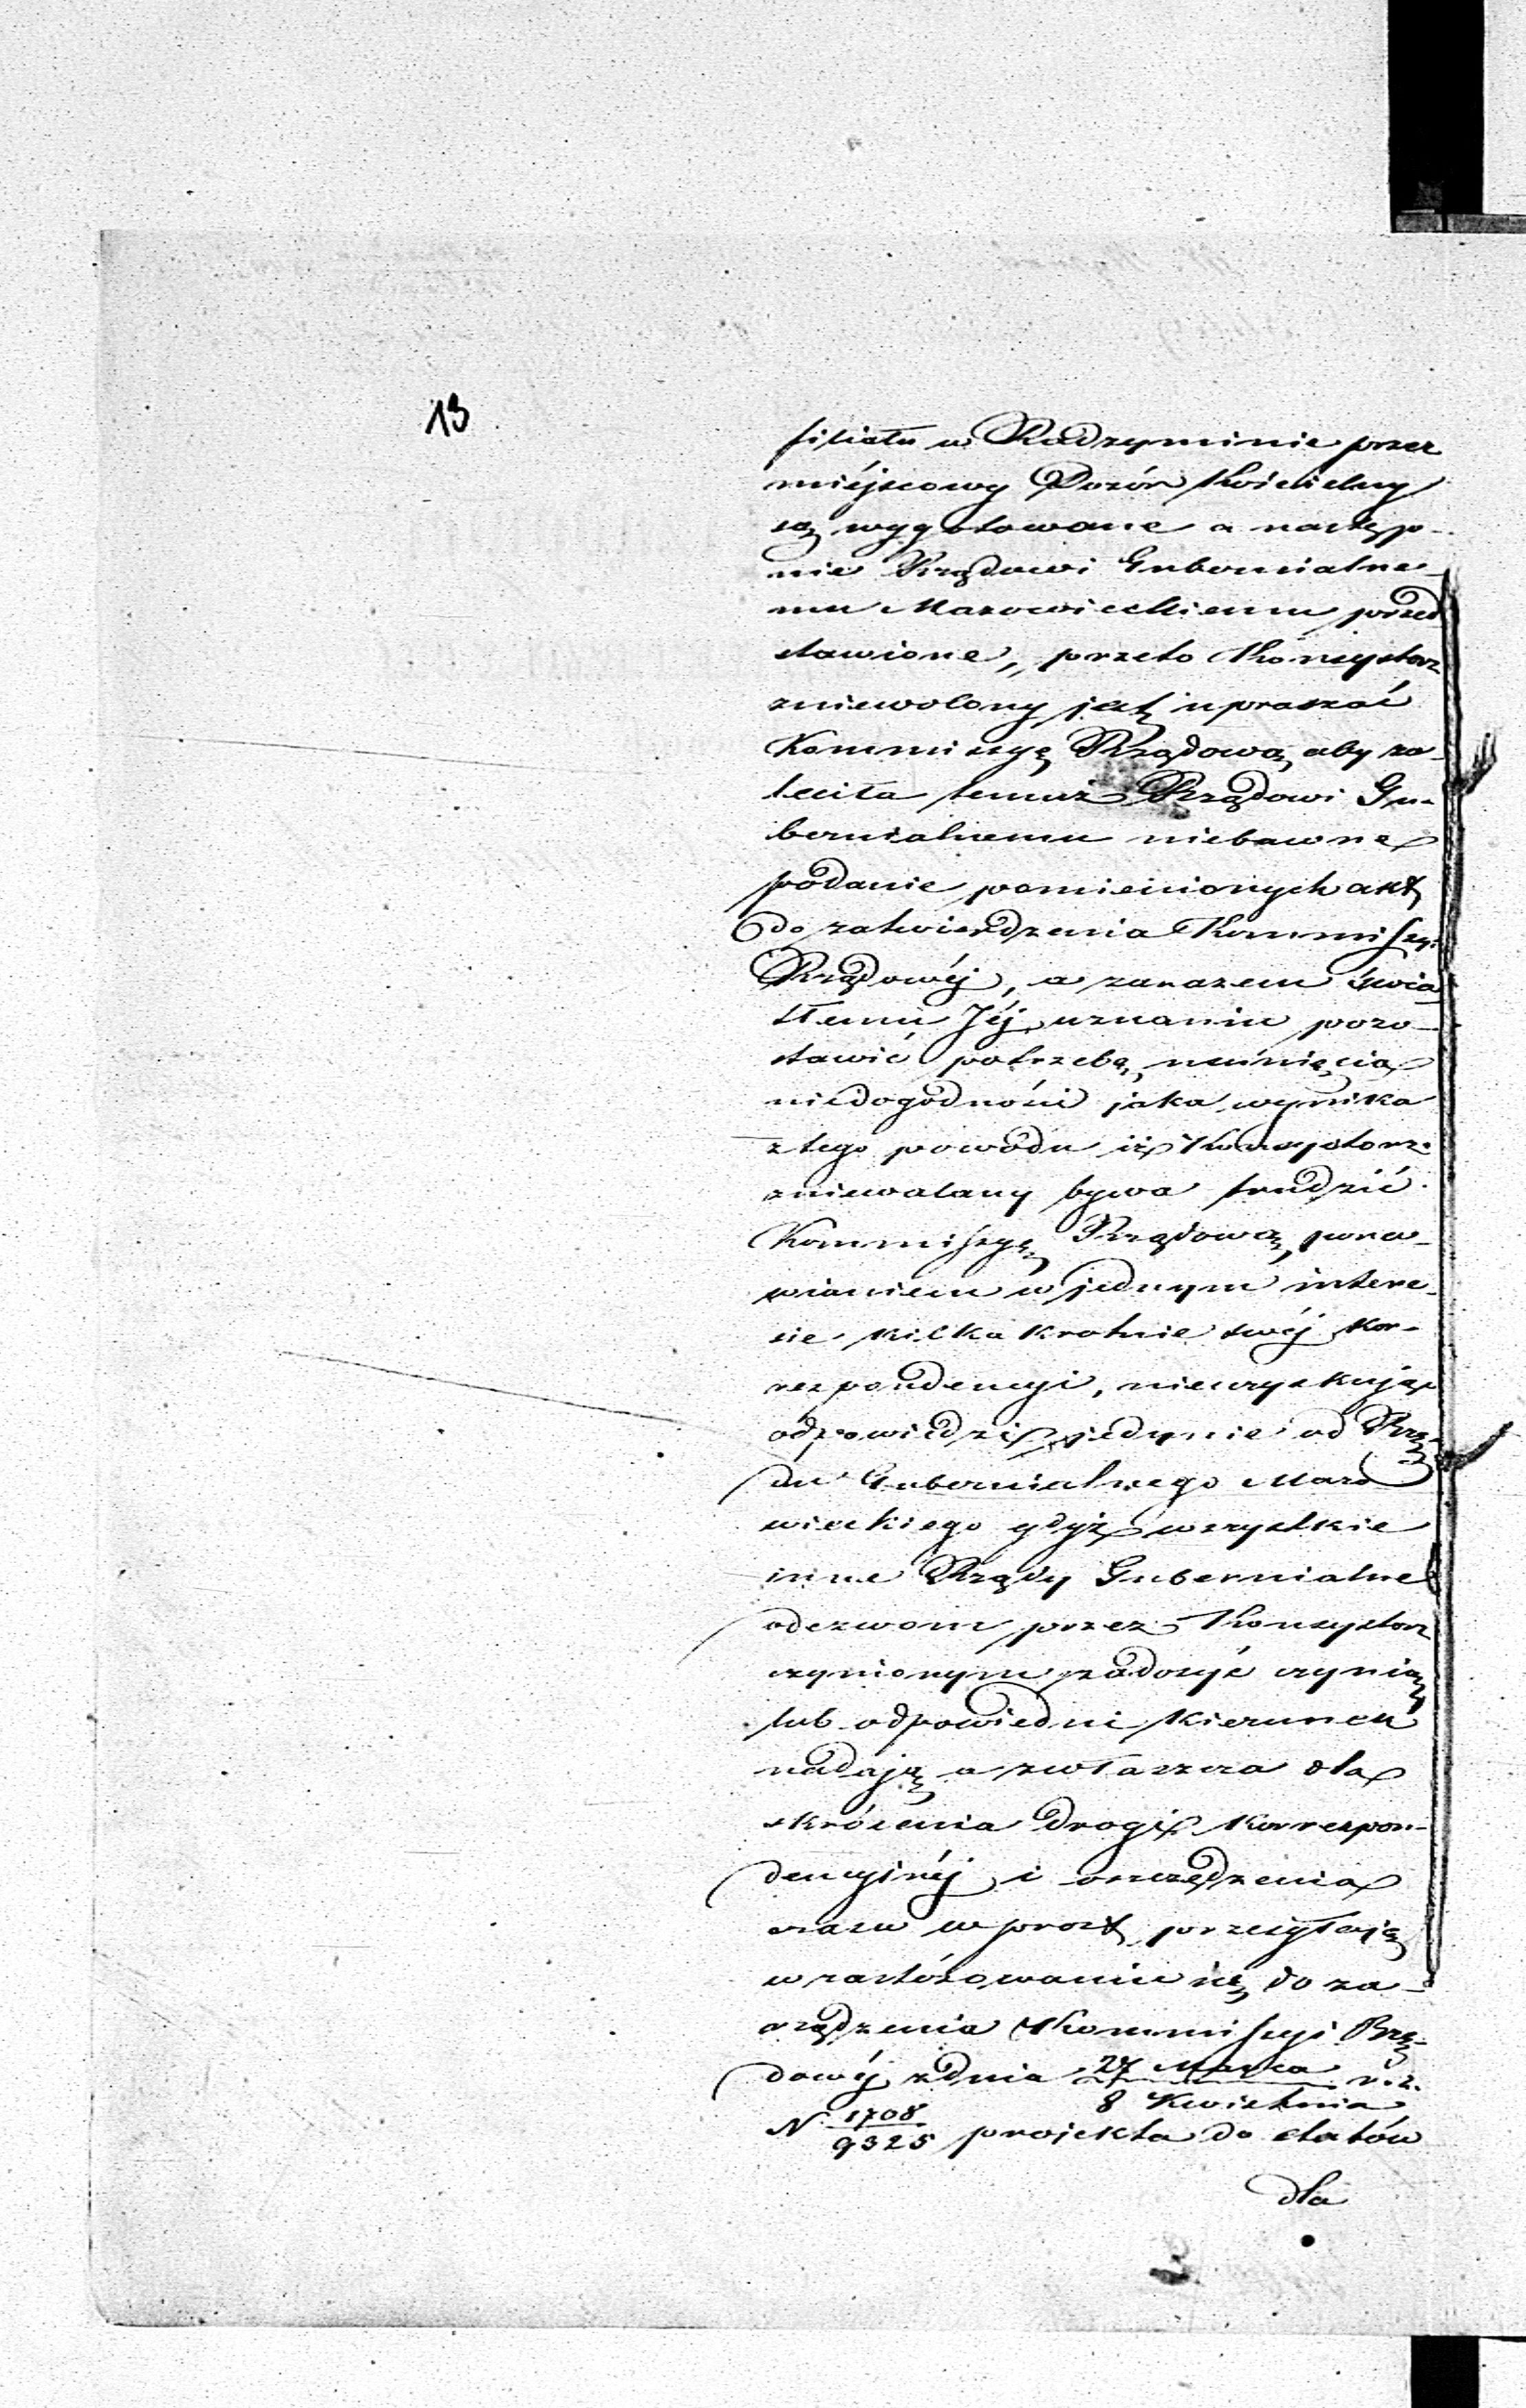 13
filiału w Radzyminie przez
miéjscowy Dozór Kościelny
są wygotowane a następ-
nie Rządowi Gubernialne-
mu Mazowieckiemu przed
stawione, przeto Konsystorz
zniewolony jest upraszać
Kommissyę Rządową aby za-
leciła temuż Rządowi Gu-
bernialnemu niebawne
podanie pomienionych akt
do zatwierdzenia Kommissyi
Rządowéj, a zarazem świa
tłemu Jéj uznaniu pozo-
stawić potrzebę usunięcia
niedogodności jaka wynika
z tego powodu iż Konsystorz
zniewalany bywa trudzić
Kommissyę Rządową, pona-
wianiem w jednym intere-
sie kilkakrotnie swéj kor-
respondencyi, nieuzyskując
odpowiedzi jedynie od Rzą-
du Gubernialnego Mazo
wieckiego gdyż wszystkie
inne Rządy Gubernialne
odezwom przez Konsystorz
czynionym zadosyć czynią
lub odpowiedni kierunek
nadają a zwłaszcza dla
skrócenia drogi korrespon-
dencyjnéj i oszczędzenia
czasu wprost przesyłają
w zastósowaniu się do za-
rządzenia Kommissyi Rzą-
dowéj z dnia 27 Marca r. z.
8 Kwietnia
N 1708
9325 projekta do etatów
dla